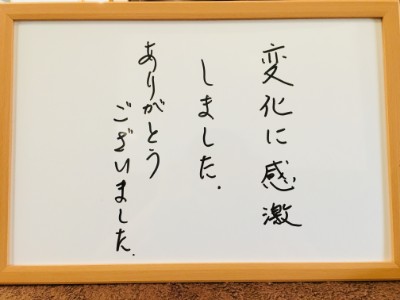 変化に感激
しました.
ありがとう
ございました.